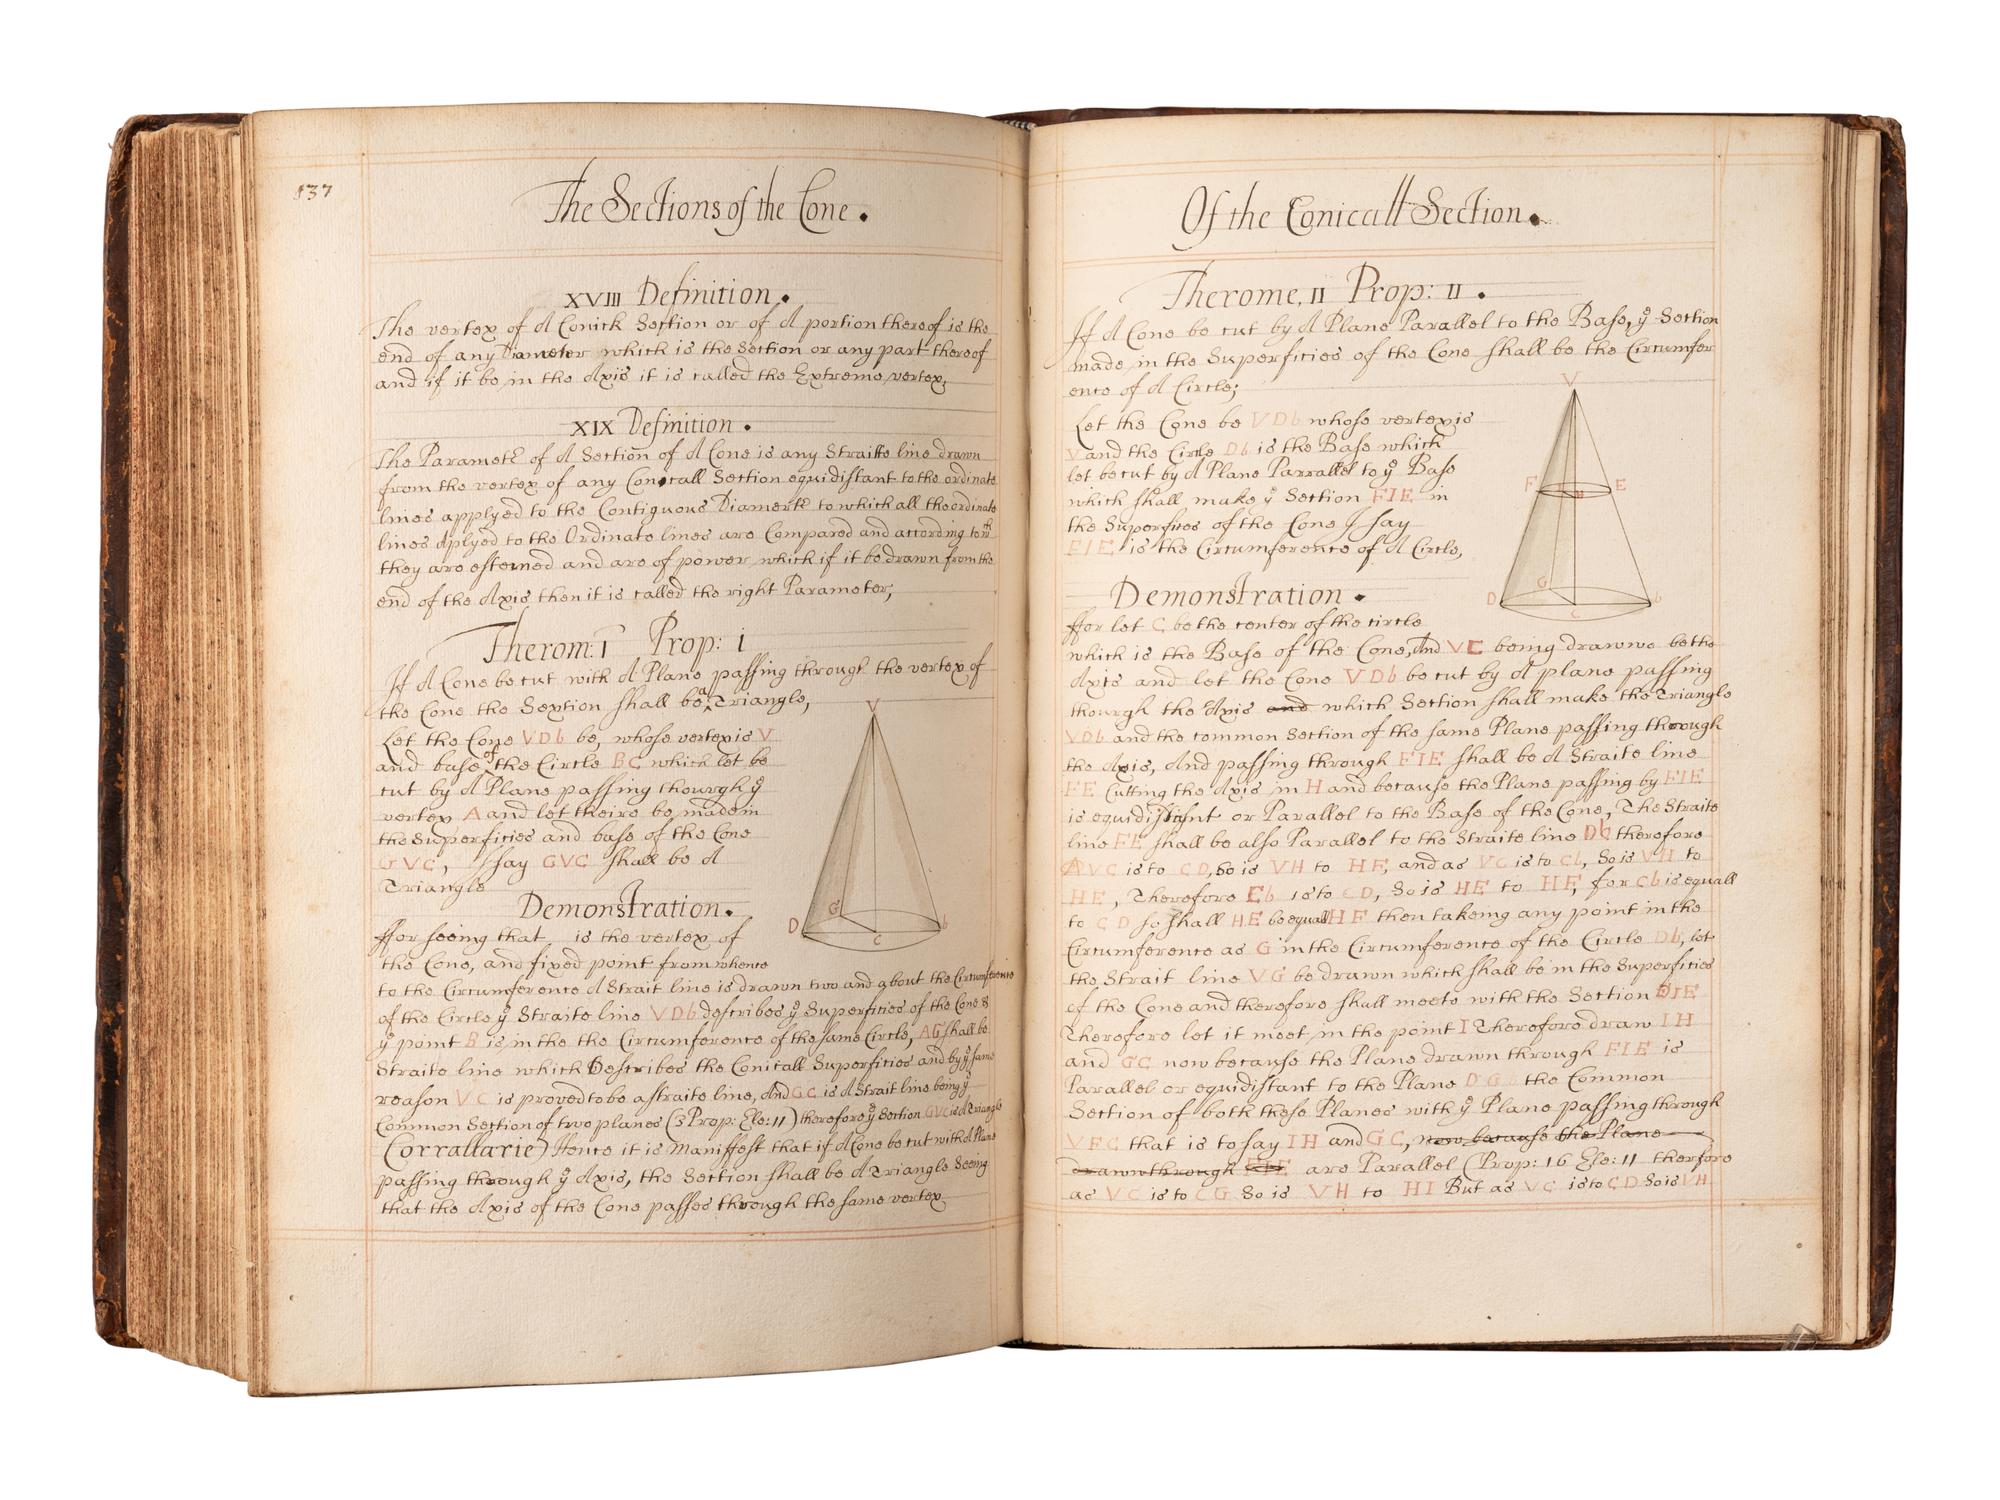 137
The Sections of the Cone.
XVIII Definition.
The vertex of A Conick Section or of A portion thereof is the
end of any Diameter which is the Section or any part thereof
and if it be in the Axis it is called the Extreme vertex,
XIX Definition.
The Parametr of A Section of A Cone is any Straitte line drawn
from the vertex of any Conicall Section equidistant to the ordinate
lines applyed to the Contiguous Diametr to which all the ordinate
lines Aplyed to the Ordinate lines are Compared and according to wth
they are esteined and are of power which if it be drawn from the
end of the Axis then it is called the right Parameter,
Therom: I Prop: i
If A Cone be cut with A Plane passing through the vertex of
the Cone the Sextion shall be a Triangle,
Let the Cone VDb be, whose vertex is V
and base of the Circle BC which let be
cut by A Plane passing thourgh ye
vertex A and let theire be made in
the Superficies and base of the Cone
GVC, I say GVC shall be A
Triangle
Demonstration.
ffor seeing that is the vertex of
the Cone, and fixed point from whence
to the Circumference A Strait line is drawn two and about the Circumference
of the Circle ye Straite line VDb describes ye Superficies of the Cone &
ye point B is in the the Circumference of the same Circle, AG shall be
Straite line which Describes the Conicall Superficies and by ye same
reason VC is proved to be a straite line, And GC is A Strait line being ye
Common Section of two planes (3 Prop: Ele: 11) therefore ye Section GVC is A Triangle
Corrallarie) Hence it is Maniffest that if A Cone be cut with A Plane
passing through ye Axis, the Section shall be A Triangle Seeing
that the Axis of the Cone passes through the same vertex
Of the Conicall Section.
Therome, II Prop: II.
If A Cone be cut by A Plane Parallel to the Base, ye Section
made in the Superficies of the Cone shall be the Circumfer
ence of A Circle;
Let the Cone be VDb whose vertex is
V and the Circle Db is the Base which
let be cut by A Plane Parrallel to ye Base
which shall make ye Section FIE in
the Superfices of the Cone I say
FIE is the Circumference of A Circle,
V
F E
H
G
D C b
Demonstration.
ffor let C be the center of the circle
which is the Base of the Cone, And VC being drawne be the
Axis and let the Cone VDb be cut by A plane passing
thourgh the Axis and which Section shall make the Triangle
VDb and the common Section of the same Plane passing through
the Axis, And passing through FIE shall be A Straite line
FE Cutting the Axis in H and because the Plane passing by FIE
is equidistant or Parallel to the Base of the Cone, The Straite
line FE shall be also Parallel to the Straite line Db therefore
A VC is to CD, so is VH to HF, and as VC is to Cb, So is VH to
HE, Therefore Cb is to CD, So is HE to HF, for Cb is equall
to CD so shall HE be equall HF then takeing any point in the
Circumference as G in the Circumference of the Circle Db, let
the Strait line VG be drawn which shall be in the Superficies
of the Cone and therefore shall meete with the Section FIE
Therefore let it meet in the point I Therefore draw IH
and GC now because the Plane drawn through FIE is
Parallel or equidistant to the Plane DGb the Common
Section of both these Planes with ye Plane passing through
VFC that is to say IH and GC, now because the Plane
drawn through FIE are Parallel (Prop: 16 Ele: 11 therfore
as VC is to CG So is VH to HI But as VC is to CD So is VH
V
G
D C b